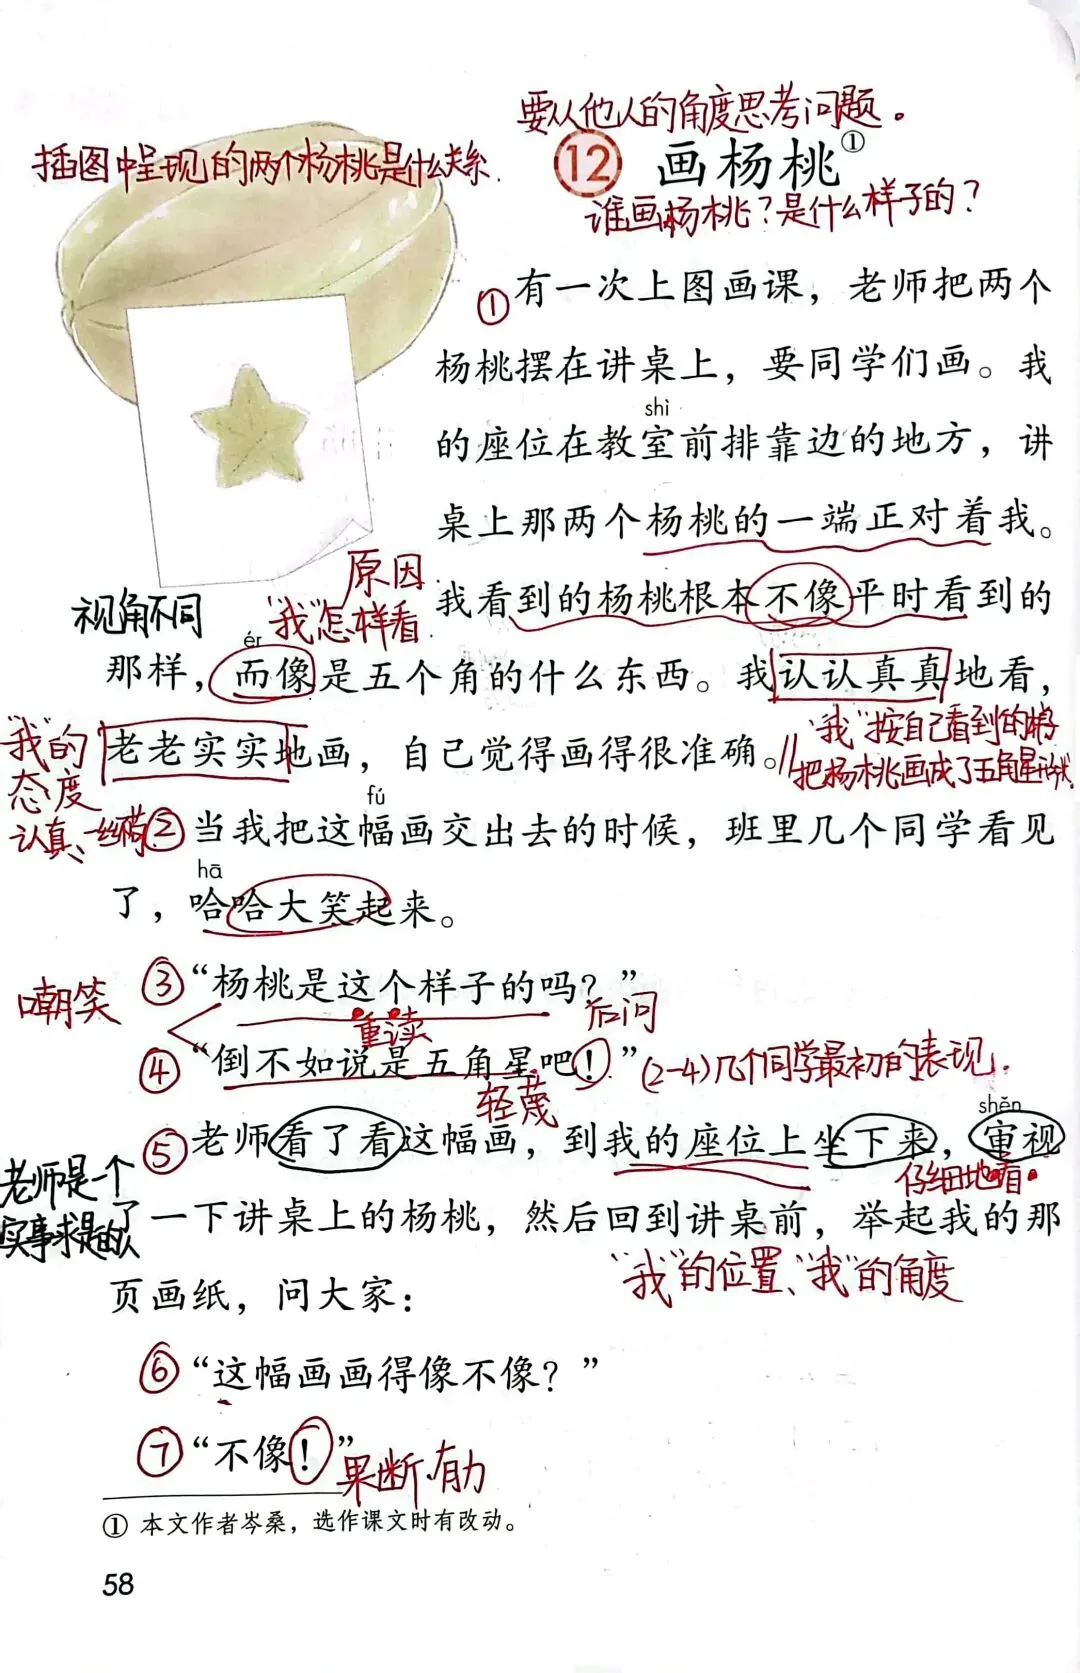 要从他人的角度思考问题。
插图中呈现的两个杨桃是什么关系.
12 画杨桃①
谁画杨桃？是什么样子的？
①有一次上图画课，老师把两个
杨桃摆在讲桌上，要同学们画。我
shì
的座位在教室前排靠边的地方，讲
桌上那两个杨桃的一端正对着我。
原因
我看到的杨桃根本不像平时看到的
视角不同
"我"怎样看
ér
那样，而像是五个角的什么东西。我认认真真地看，
"我"的
态度
认真、一丝不苟
老老实实地画，自己觉得画得很准确。//
"我"按自己看到的样子
把杨桃画成了五角星形状
fú
②当我把这幅画交出去的时候，班里几个同学看见
hā
了，哈哈大笑起来。
③“杨桃是这个样子的吗？”
嘲笑
重读
后问
④“倒不如说是五角星吧！”
(2-4)几个同学最初的表现.
轻蔑
shěn
⑤老师看了看这幅画，到我的座位上坐下来，审视
仔细地看
老师是一个
实事求是的人
了一下讲桌上的杨桃，然后回到讲桌前，举起我的那
"我"的位置、"我"的角度
页画纸，问大家：
⑥“这幅画画得像不像？”
⑦“不像！”
果断、有力
① 本文作者岑桑，选作课文时有改动。
58